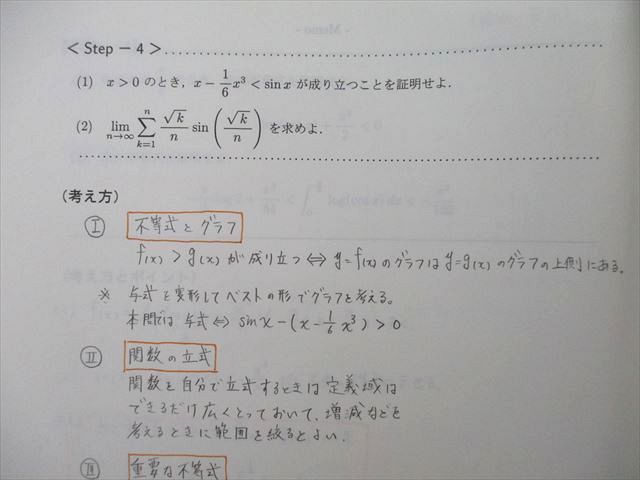 < Step − 4 >
(1) x > 0 のとき, x − 1/6 x³ < sin x が成り立つことを証明せよ.
(2) lim_{n→∞} Σ_{k=1}^{n} √k/n sin(√k/n) を求めよ.
(考え方)
Ⅰ 不等式とグラフ
f(x) > g(x) が成り立つ ⇔ y=f(x)のグラフは y=g(x)のグラフの上側にある。
※ 与式を変形してベストの形でグラフを考える。
本問では 与式 ⇔ sin x − (x − 1/6 x³) > 0
Ⅱ 関数の立式
関数を自分で立式するときは定義域は
できるだけ広くとっておいて、増減などを
考えるときに範囲を絞るとよい.
Ⅲ 重要な不等式